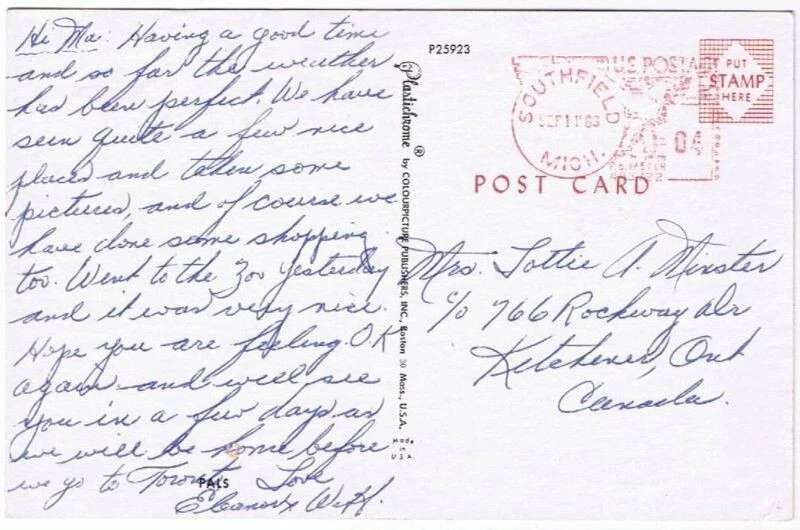 Hi Ma: Having a good time
and so far the weather
has been perfect. We have
seen quite a few nice
places and taken some
pictures, and of course we
have done some shopping
too. Went to the Zoo yesterday
and it was very nice.
Hope you are feeling O.K
again and will see
you in a few days as
we will be home before
we go to Toronto Love
Eleanor x Wilf.
PALS
P25923
Plastichrome ® by COLOURPICTURE PUBLISHERS, INC., Boston 30 Mass., U.S.A.
Made in U.S.A.
SOUTHFIELD
SEP 11 '63
MICH.
U.S. POSTAGE
04
PUT
STAMP
HERE
POST CARD
Mrs. Lottie A. Minster
c/o 766 Rockway Dr
Kitchener, Ont
Canada.